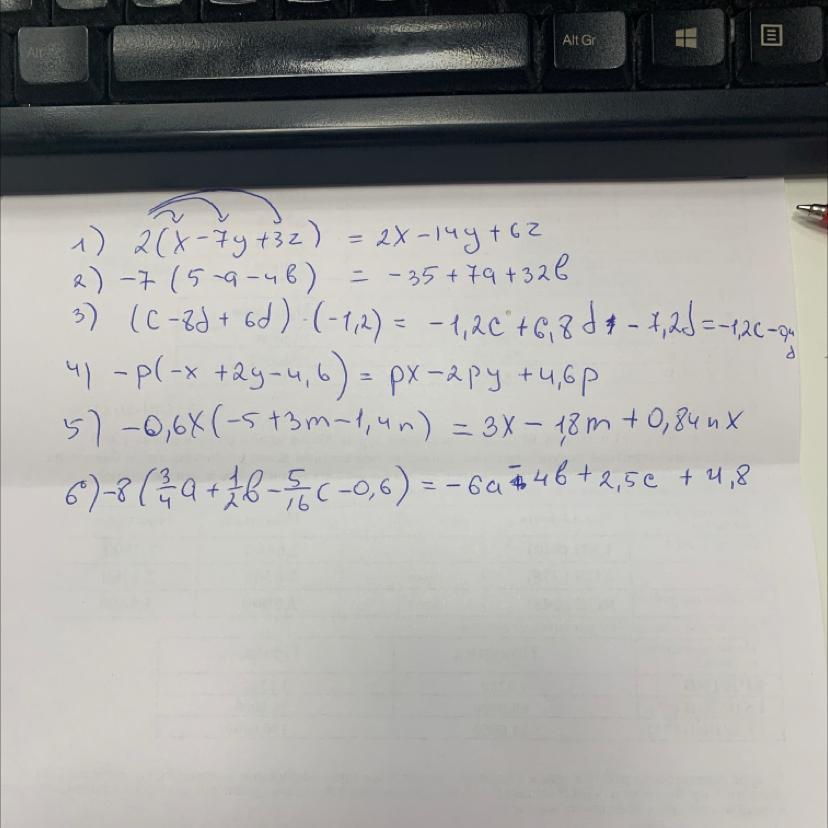 Alt Gr
1) 2(x-7y+3z) = 2x-14y+6z
2) -7(5-a-4b) = -35+7a+32b
3) (c-8d+6d)·(-1,2) = -1,2c+6,8d - 7,2d=-1,2c-0,4d
4) -p(-x+2y-4,6) = px-2py+4,6p
5) -0,6x(-5+3m-1,4n) = 3x-1,8m+0,84nx
6) -8(3/4a+1/2b-5/16c-0,6) = -6a-4b+2,5c+4,8